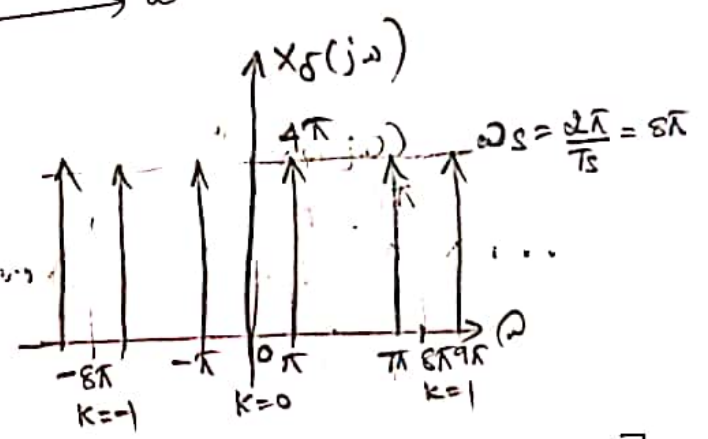 ω
Xδ(jω)
4π
ωs = 2π/Ts = 8π
...
-8π -π 0 π 7π 8π 9π ω
K=-1 K=0 K=1